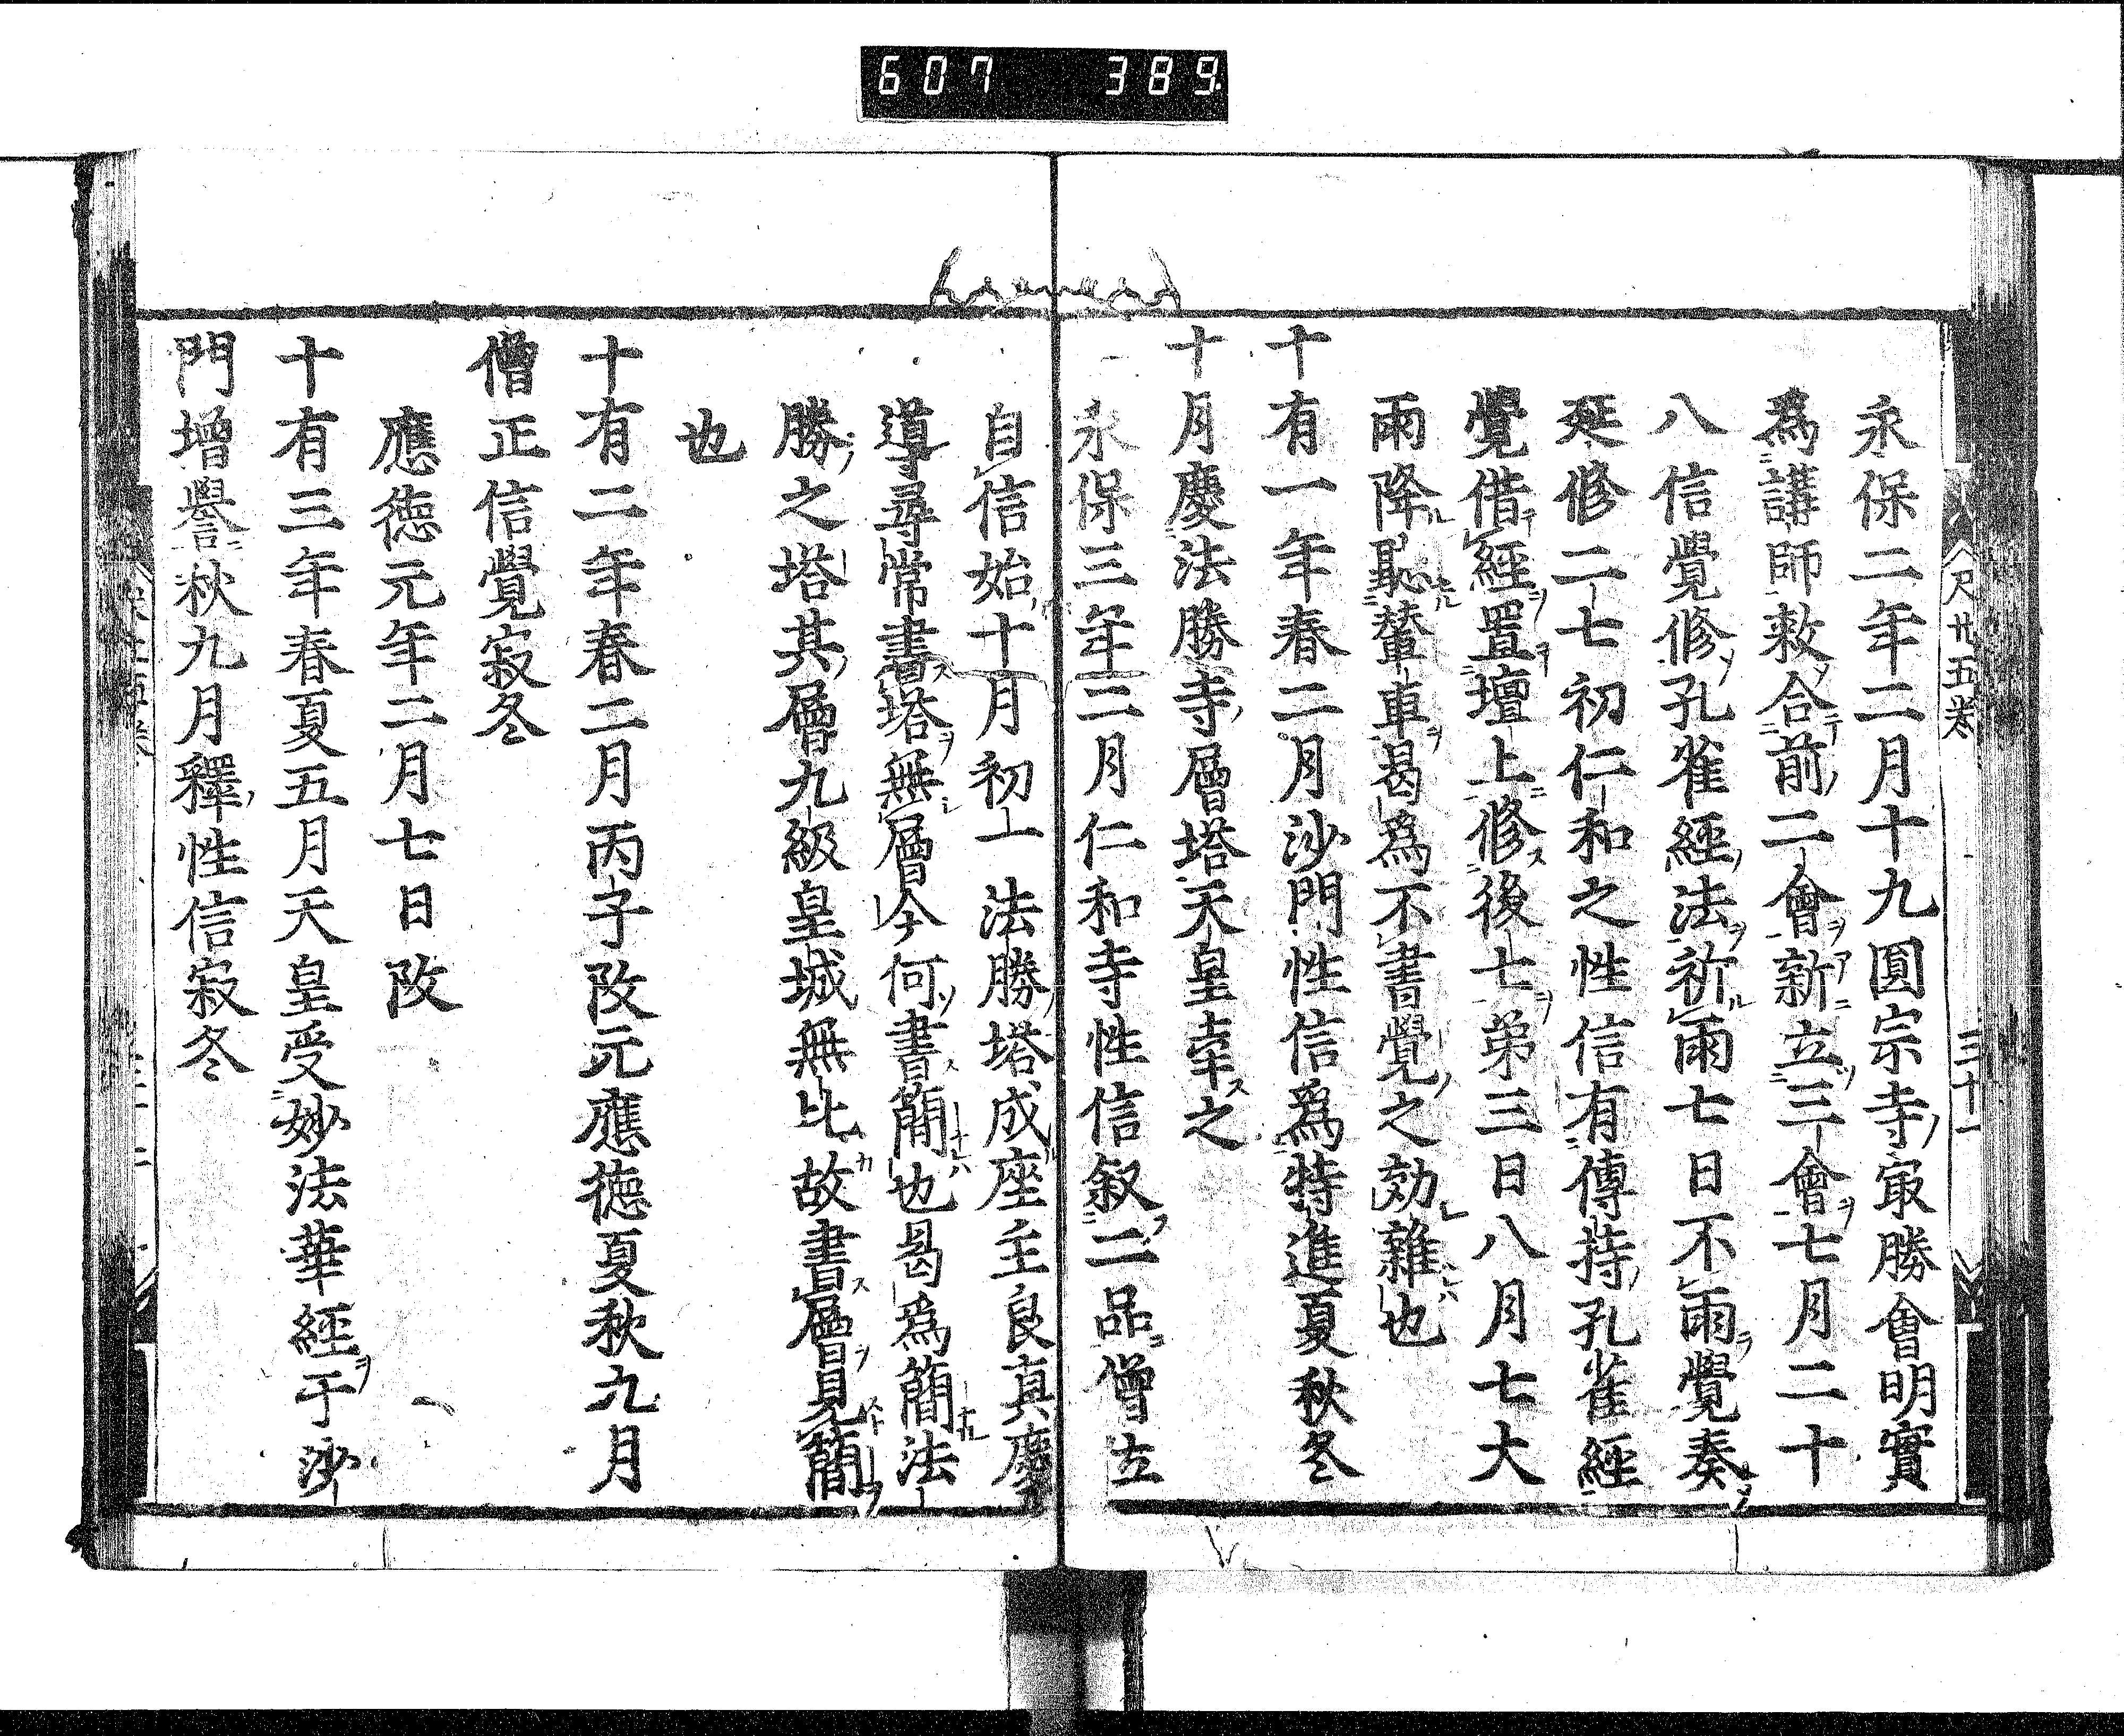 607 389
永保二年二月十九圓宗寺㝡勝會明實
爲講師敕合前二會新立三會七月二十
八信覺修孔雀經法祈雨七日不雨覺奏
延修二七初仁和之性信有傳持孔雀經
覺借經置壇上修後七第三日八月七大
雨降恥輦車曷爲不書覺之効雜也
十有一年春二月沙門性信爲特進夏秋冬
十月慶法勝寺層塔天皇幸之
永保三年二月仁和寺性信叙二品僧立
尺廿五巻
三十一
自信始十月初一法勝塔成座主良真慶
導尋常書塔無層今何書簡也曷爲簡法
勝之塔其層九級皇城無比故書層見簡
也
十有二年春二月丙子改元應徳夏秋九月
僧正信覺寂冬
應徳元年二月七日改
十有三年春夏五月天皇受妙法華經于沙
門增譽秋九月釋性信寂冬